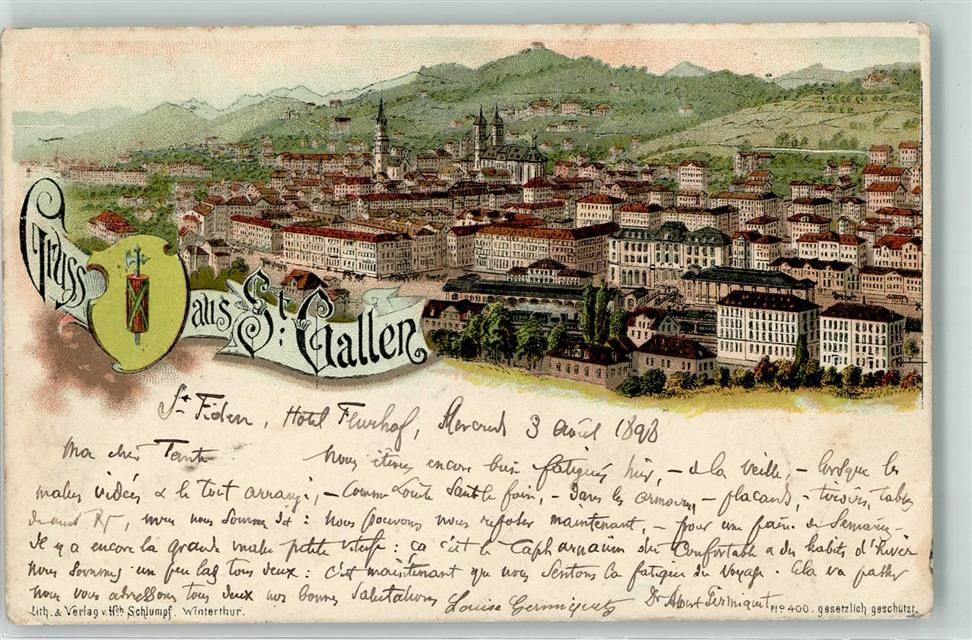 Gruss aus St. Gallen
St Fiden, Hôtel Flurhof, Mercredi 3 août 1898
Ma chère Tante Nous étions encore bien fatigués hier, – et la veille, – lorsque les
malles vidées & le tout arrangé, – comme – dans les armoires, – placards, – tiroirs, tables
de nuit nous nous sommes dit : nous pouvons nous reposer maintenant, – pour une
Il y a encore la grande malle petite : ça c'est le Capharnaüm du Confortable & des habits d'hiver
Nous sommes un peu las tous deux : c'est maintenant que nous sentons la fatigue du voyage. Cela va passer
nous vous adressons tous deux nos bonnes salutations Louise Dr Albert
Lith. & Verlag v. Hch Schlumpf. Winterthur. No 400. gesetzlich geschützt.